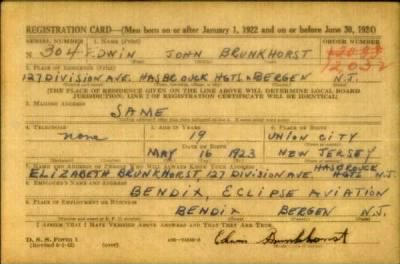 REGISTRATION CARD—(Men born on or after January 1, 1922 and on or before June 30, 1924)
SERIAL NUMBER 1. NAME (Print) ORDER NUMBER
N 304 EDWIN JOHN BRUNKHORST
12032
2. PLACE OF RESIDENCE (Print)
127 DIVISION AVE. HASBROUCK HGTS. BERGEN N.J.
[THE PLACE OF RESIDENCE GIVEN ON THE LINE ABOVE WILL DETERMINE LOCAL BOARD
JURISDICTION; LINE 2 OF REGISTRATION CERTIFICATE WILL BE IDENTICAL]
3. MAILING ADDRESS
SAME
4. TELEPHONE 5. AGE IN YEARS 6. PLACE OF BIRTH
none 19 UNION CITY
DATE OF BIRTH
MAY 16 1923 NEW JERSEY
7. NAME AND ADDRESS OF PERSON WHO WILL ALWAYS KNOW YOUR ADDRESS
HASBROUCK
ELIZABETH BRUNKHORST, 127 DIVISION AVE. HGTS N.J.
8. EMPLOYER'S NAME AND ADDRESS
BENDIX, ECLIPSE AVIATION
9. PLACE OF EMPLOYMENT OR BUSINESS
BENDIX BERGEN N.J.
I AFFIRM THAT I HAVE VERIFIED ABOVE ANSWERS AND THAT THEY ARE TRUE.
D. S. S. Form 1
Edwin Brunkhorst